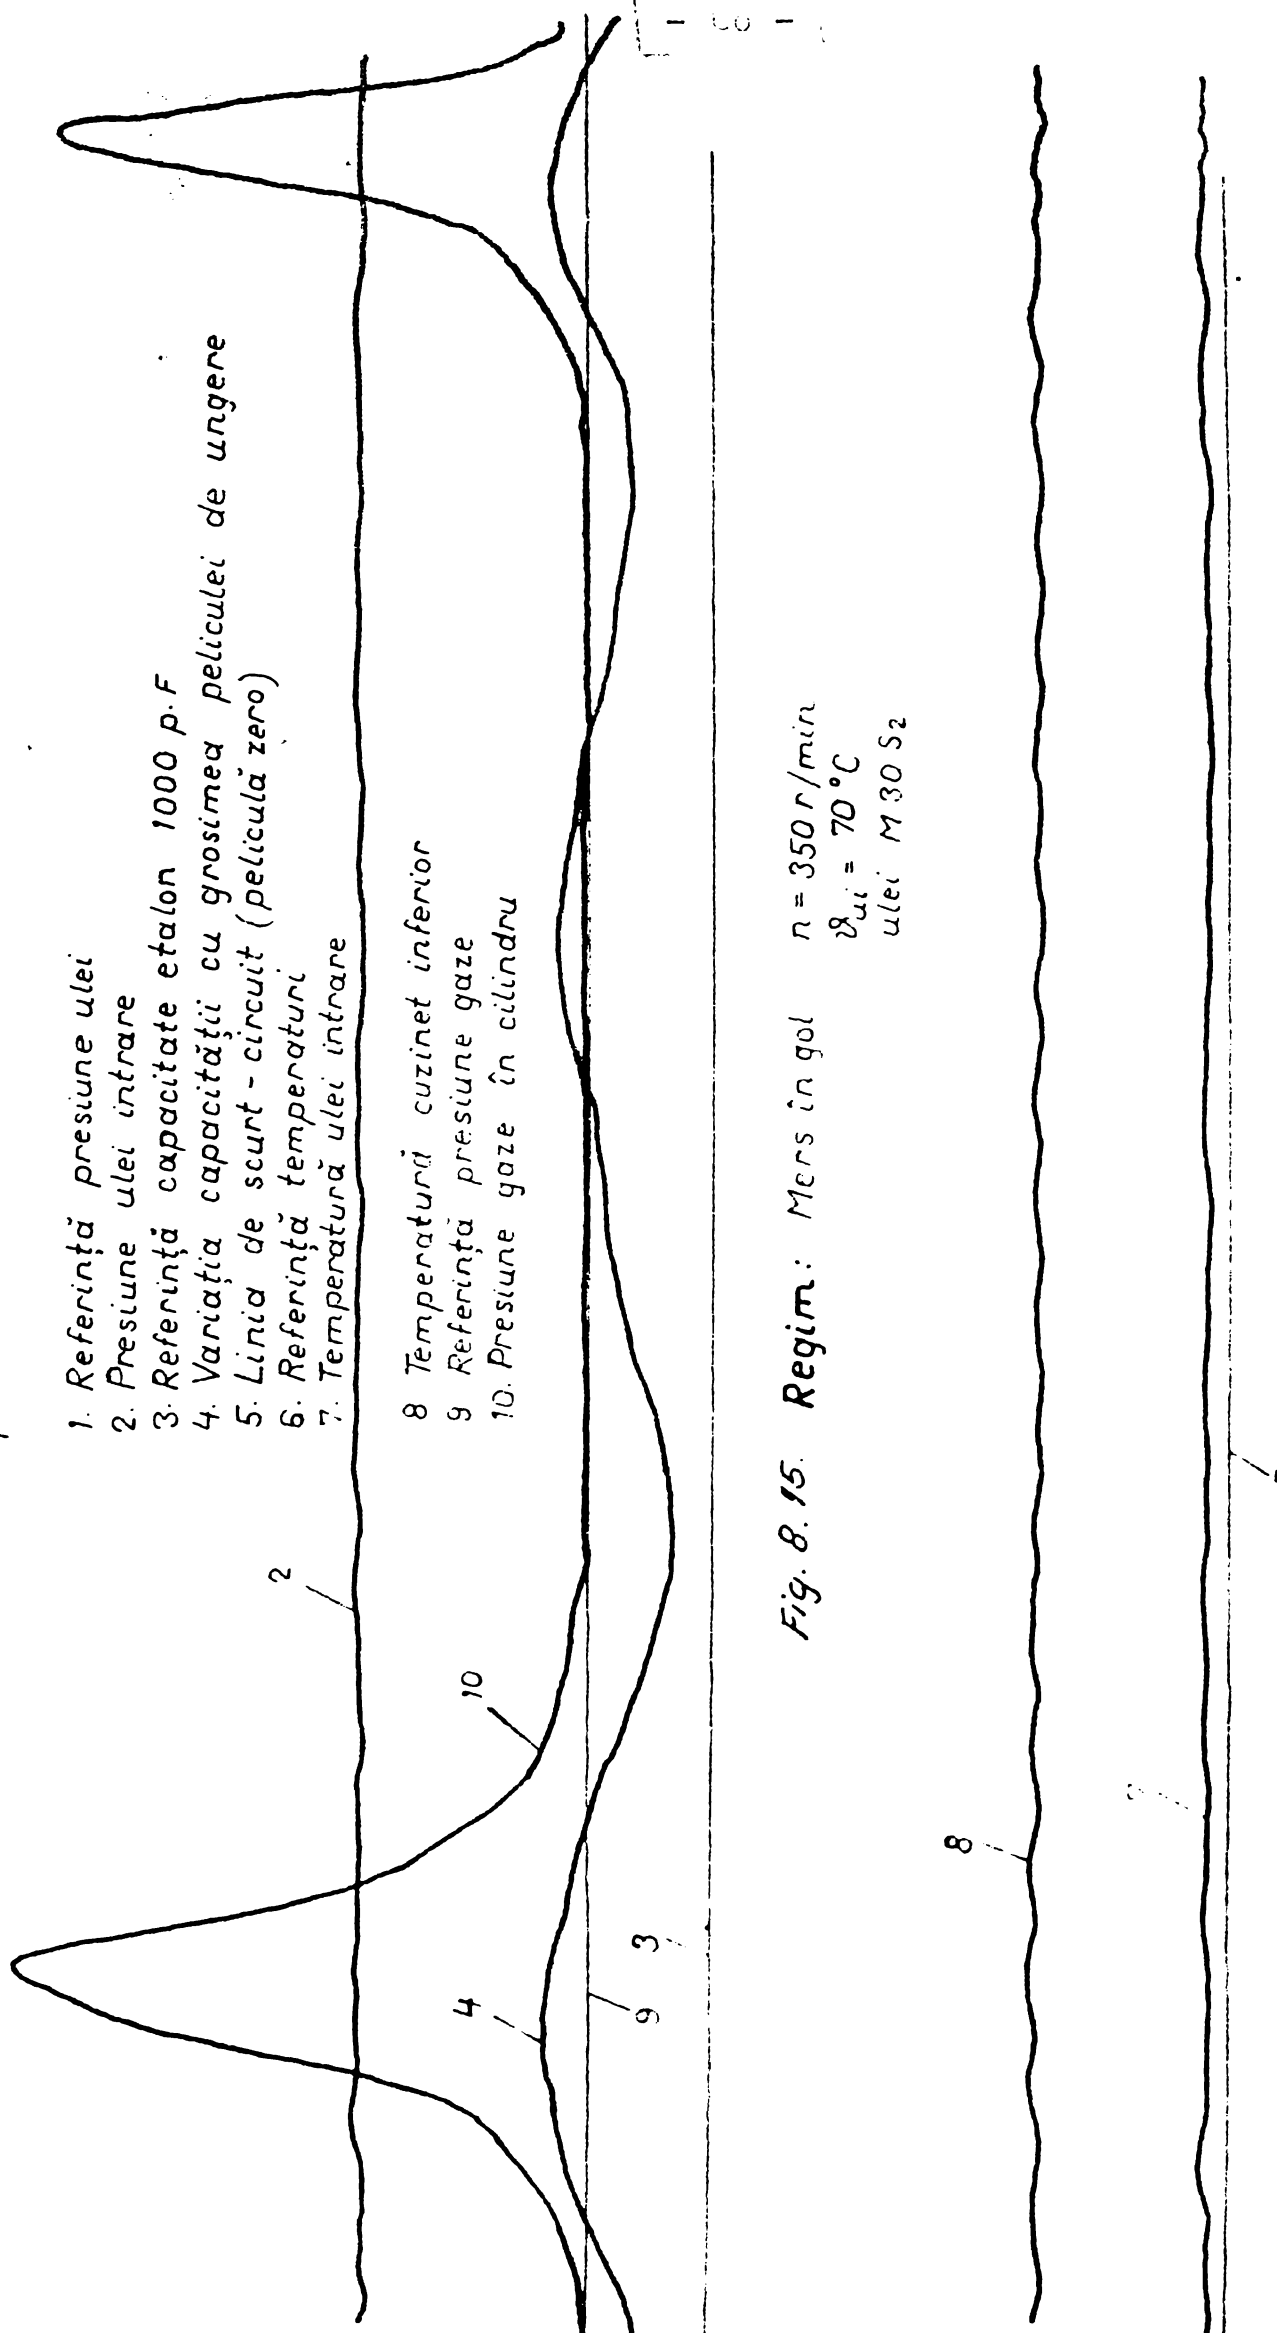 1. Referință presiune ulei
2. Presiune ulei intrare
3. Referință capacitate etalon 1000 p.F
4. Variația capacității cu grosimea peliculei de ungere
5. Linia de scurt-circuit (peliculă zero)
6. Referință temperaturi
7. Temperatură ulei intrare
8 Temperatură cuzinet inferior
9 Referință presiune gaze
10. Presiune gaze în cilindru
2
10
4
9
3
8
Fig. 8.15. Regim: Mers în gol n = 350 r/min
ϑui = 70 °C
ulei M 30 S2